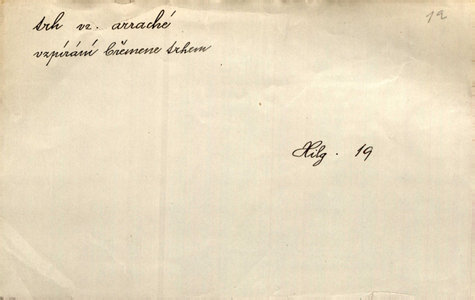 trh vz. arraché
vzpírání břemene trhem
Hilg. 19
12